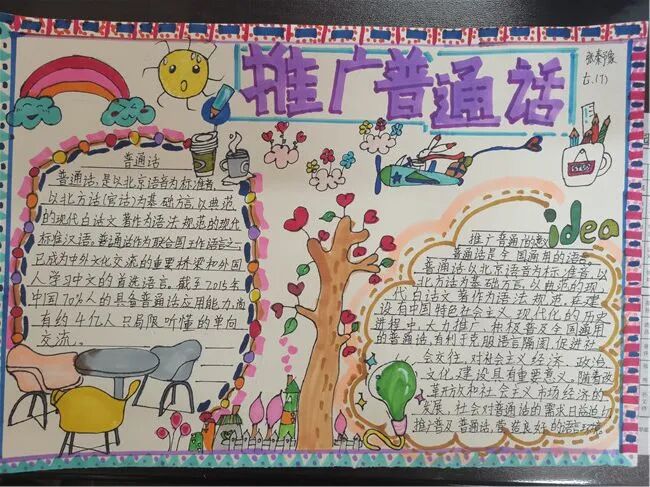 推广普通话
张秦豫
七.(7)
普通话
普通话,是以北京语音为标准音,
以北方话(官话)为基础方言,以典范
的现代白话文著作为语法规范的现代
标准汉语。普通话作为联合国工作语言之一
已成为中外文化交流的重要桥梁和外国
人学习中文的首选语言。截至2015年
中国70%人的具备普通话应用能力,尚
有约4亿人只局限听懂的单向
交流。
idea
推广普通话的意义
普通话是全国通用的语言
普通话以北京语音为标准音,以
北方话为基础方言,以典范的现
代白话文著作为语法规范,在建
设有中国特色社会主义现代化的历史
进程中,大力推广、积极普及全国通用
的普通话,有利于克服语言隔阂,促进社
会交往,对社会主义经济、政治、
文化建设具有重要意义。随着改
革开放和社会主义市场经济的
发展,社会对普通话的需求日益迫切
推广普及普通话,营造良好的语言环境